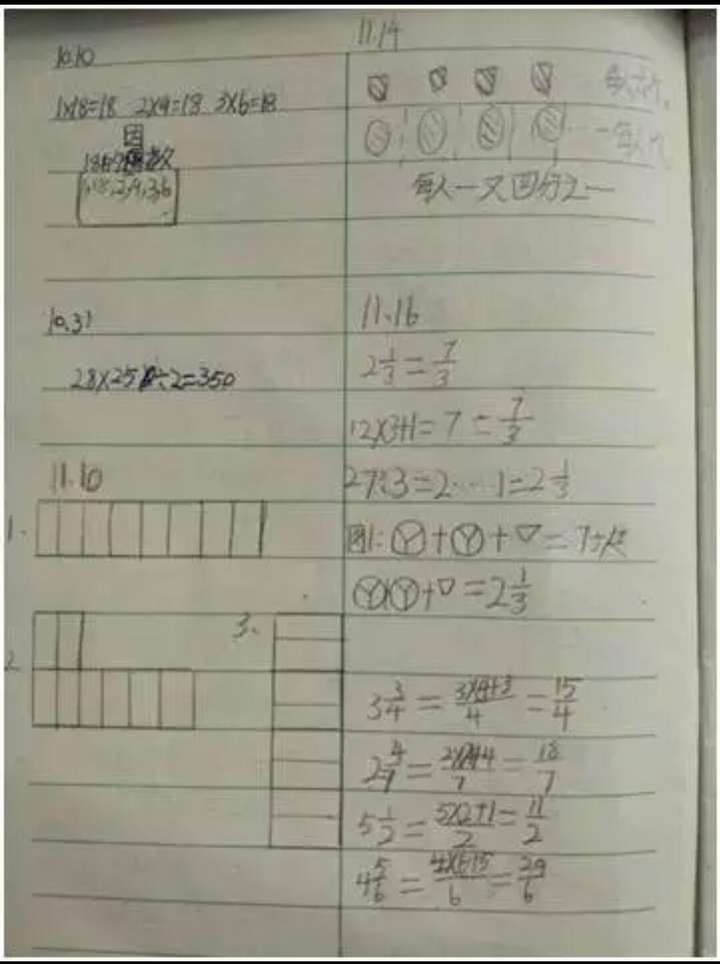 10.10
1×18=18 2×9=18 3×6=18
因
18的因数
1,18,2,9,3,6
10.31
28×25÷2=350
11.10
1.
2
3.
11.14
每人一又四分之一
11.16
2 1/3 = 7/3
2×3+1=7=7/3
7÷3=2…1=2 1/3
图1:
+ + = 7
+ = 2 1/3
3 3/4 = 3×4+3/4 = 15/4
2 4/7 = 2×7+4/7 = 18/7
5 1/2 = 5×2+1/2 = 11/2
4 5/6 = 4×6+5/6 = 29/6